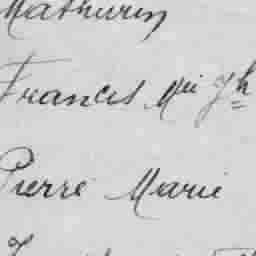 Mathurin
Francis Mri Jh
Pierre Marie